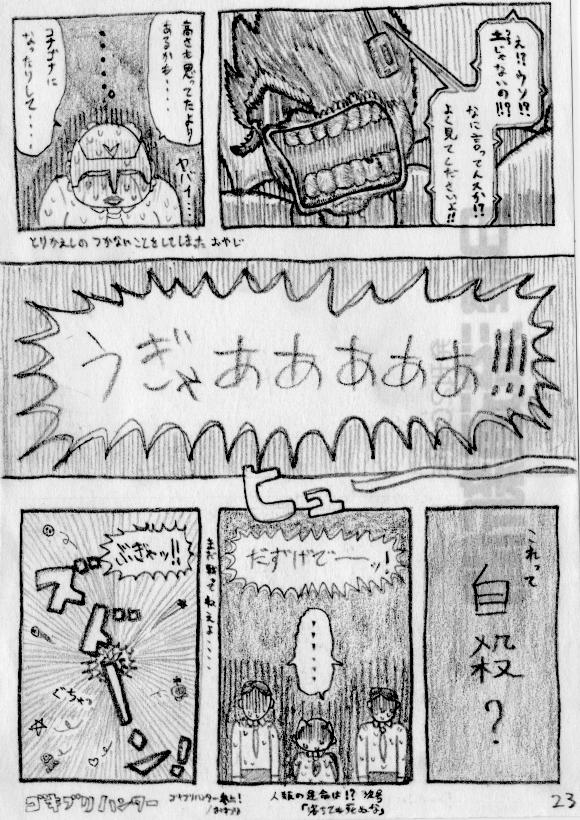 え!?ウソ!?
土じゃないの!?
なに言ってんスか!?
よく見てくださいよ!!
高さも思ってたより
あるかも・・・・
コナゴナに
なったりして・・・・
ヤバイ・・・・
とりかえしのつかないことをしてしまったおやじ
うぎゃあああああ!!!
ヒュー
これって
自殺?
だずげでーーッ!
・・・・・・
まだ戦ってねえよ・・・・
ぶぎゃッ!!
ズドーン!
ぐちゃっ
ゴキブリハンター
人類の運命は!?次号
「落ちても死ぬな」
23